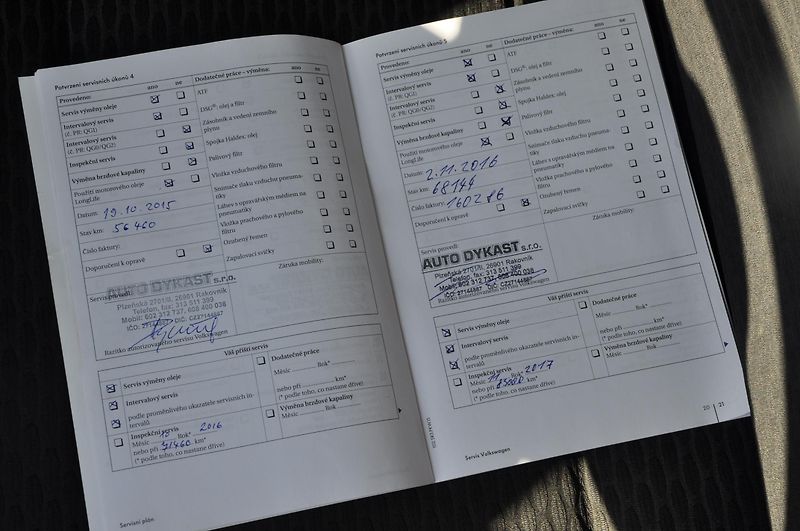 Potvrzení servisních úkonů 4
Provedeno: ano ne
Servis výměny oleje
Intervalový servis
(č. PR: QG1)
Intervalový servis
(č. PR: QG0/QG2)
Inspekční servis
Výměna brzdové kapaliny
Použití motorového oleje
LongLife
Datum: 19.10.2015
Stav km: 56 460
Číslo faktury:
Doporučení k opravě
Dodatečné práce – výměna: ano ne
ATF
DSG®: olej a filtr
Zásobník a vedení zemního
plynu
Spojka Haldex: olej
Palivový filtr
Vložka vzduchového filtru
Snímače tlaku vzduchu pneuma-
tiky
Láhev s opravářským médiem na
pneumatiky
Vložka prachového a pylového
filtru
Ozubený řemen
Zapalovací svíčky
Servis provedl:
Záruka mobility:
AUTO DYKAST s.r.o.
Plzeňská 2701/II, 26901 Rakovník
Telefon, fax: 313 511 399
Mobil: 602 312 737, 608 400 038
IČO: 27144887 DIČ: CZ27144887
Razítko autorizovaného servisu Volkswagen
Váš příští servis
Servis výměny oleje
Intervalový servis
podle proměnlivého ukazatele servisních in-
tervalů
Inspekční servis
Měsíc Rok* 2016
nebo při 71460 km*
(* podle toho, co nastane dříve)
Dodatečné práce
Měsíc Rok*
nebo při km*
(* podle toho, co nastane dříve)
Výměna brzdové kapaliny
Měsíc Rok
Servisní plán
Potvrzení servisních úkonů 5
Provedeno: ano ne
Servis výměny oleje
Intervalový servis
(č. PR: QG1)
Intervalový servis
(č. PR: QG0/QG2)
Inspekční servis
Výměna brzdové kapaliny
Použití motorového oleje
LongLife
Datum: 2.11.2016
Stav km: 68144
Číslo faktury: 160276
Doporučení k opravě
Dodatečné práce – výměna: ano ne
ATF
DSG®: olej a filtr
Zásobník a vedení zemního
plynu
Spojka Haldex: olej
Palivový filtr
Vložka vzduchového filtru
Snímače tlaku vzduchu pneuma-
tiky
Láhev s opravářským médiem na
pneumatiky
Vložka prachového a pylového
filtru
Ozubený řemen
Zapalovací svíčky
Servis provedl:
Záruka mobility:
AUTO DYKAST s.r.o.
Plzeňská 2701/II, 26901 Rakovník
Telefon, fax: 313 511 399
Mobil: 602 312 737, 608 400 038
IČO: 27144887 DIČ: CZ27144887
Razítko autorizovaného servisu Volkswagen
Váš příští servis
Servis výměny oleje
Intervalový servis
podle proměnlivého ukazatele servisních in-
tervalů
Inspekční servis
Měsíc 11 Rok* 2017
nebo při km*
(* podle toho, co nastane dříve)
Dodatečné práce
Měsíc Rok*
nebo při km*
(* podle toho, co nastane dříve)
Výměna brzdové kapaliny
Měsíc Rok
20 | 21
Servis Volkswagen